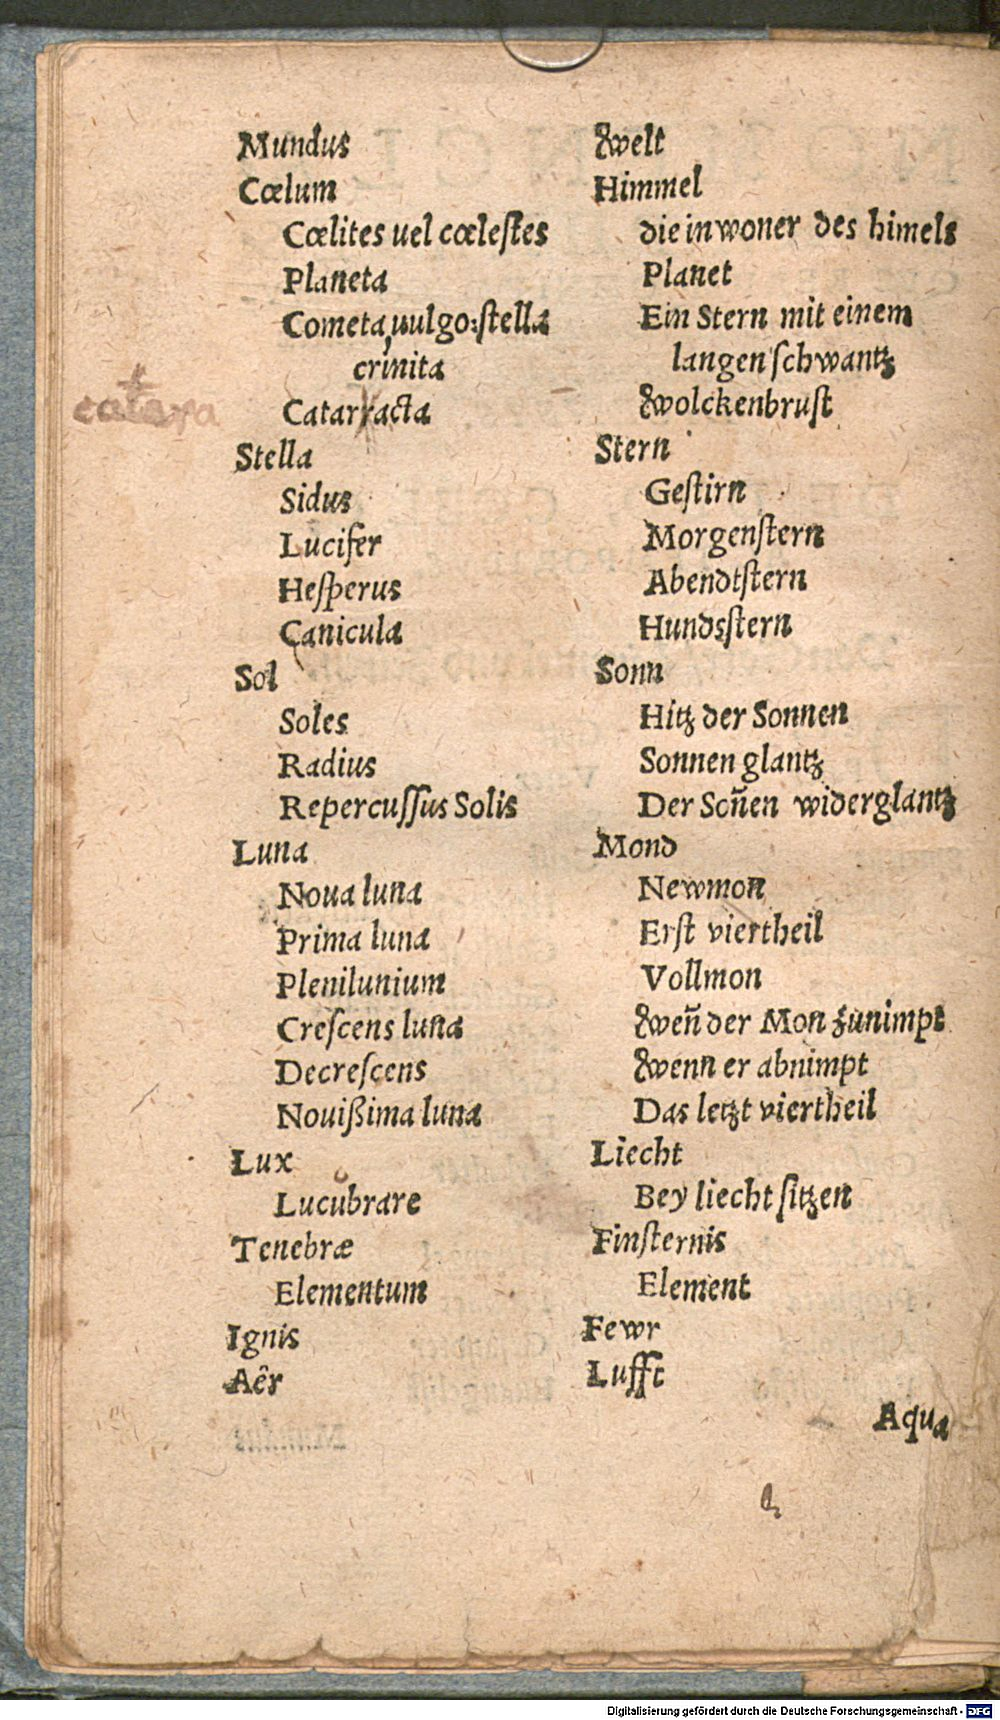 Mundus Welt
Cœlum Himmel
Cœlites uel cœleſtes die inwoner des himels
Planeta Planet
Cometa, uulgo: ſtella Ein Stern mit einem
crinita langen ſchwantz
Catarracta Wolckenbruſt
Stella Stern
Sidus Geſtirn
Lucifer Morgenſtern
Heſperus Abendtſtern
Canicula Hundsſtern
Sol Sonn
Soles Hitz der Sonnen
Radius Sonnen glantz
Repercuſſus Solis Der Soñen widerglantz
Luna Mond
Noua luna Newmon
Prima luna Erſt viertheil
Plenilunium Vollmon
Creſcens luna Weñ der Mon zunimpt
Decreſcens Wenn er abnimpt
Nouißima luna Das letzt viertheil
Lux Liecht
Lucubrare Bey liecht ſitzen
Tenebræ Finſternis
Elementum Element
Ignis Fewr
Aêr Lufft
Aqua
Digitalisierung gefördert durch die Deutsche Forschungsgemeinschaft - DFG